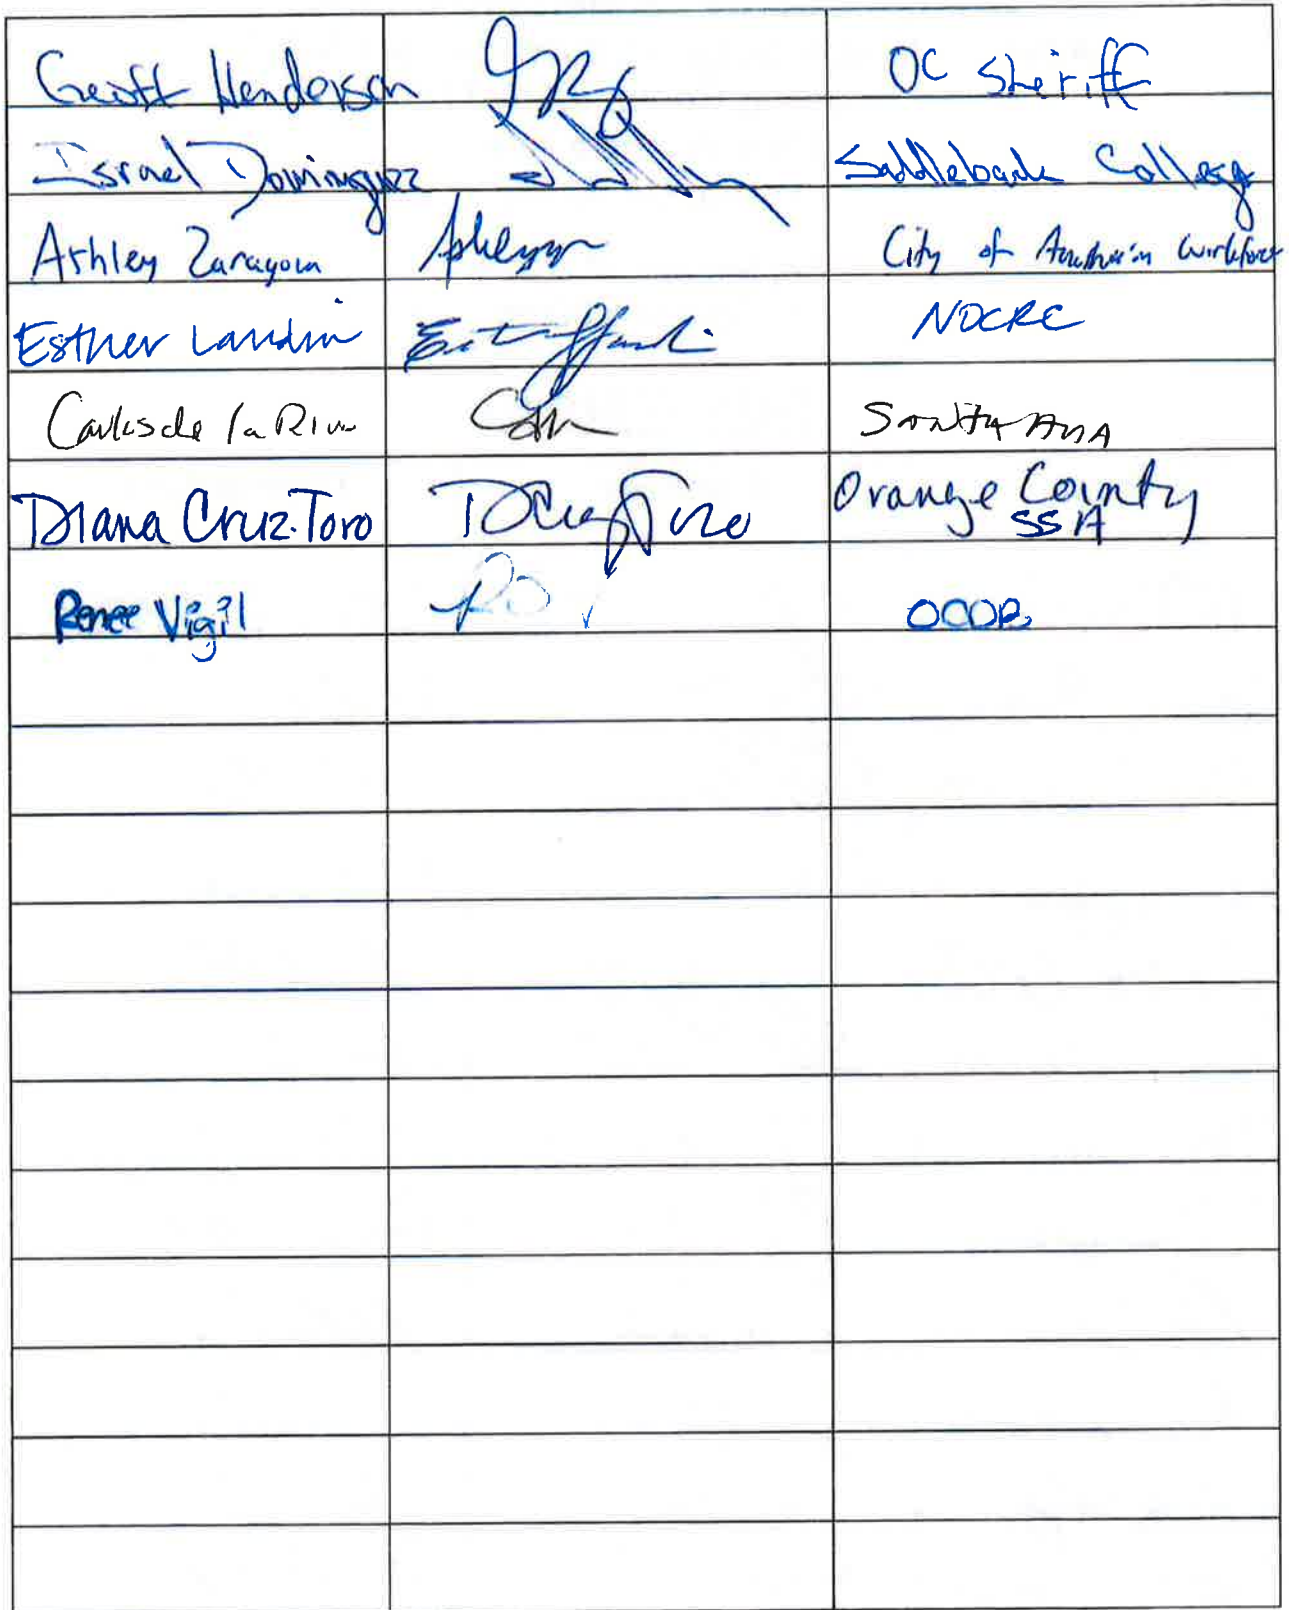 Geoff Henderson OC Sheriff
Israel Dominguez Saddleback College
Ashley Zaragoza City of Anaheim Workforce
Esther Landin NOCRC
Carlos de la Riva SANTA ANA
Diana Cruz-Toro Orange County
SSA
Renee Vigil